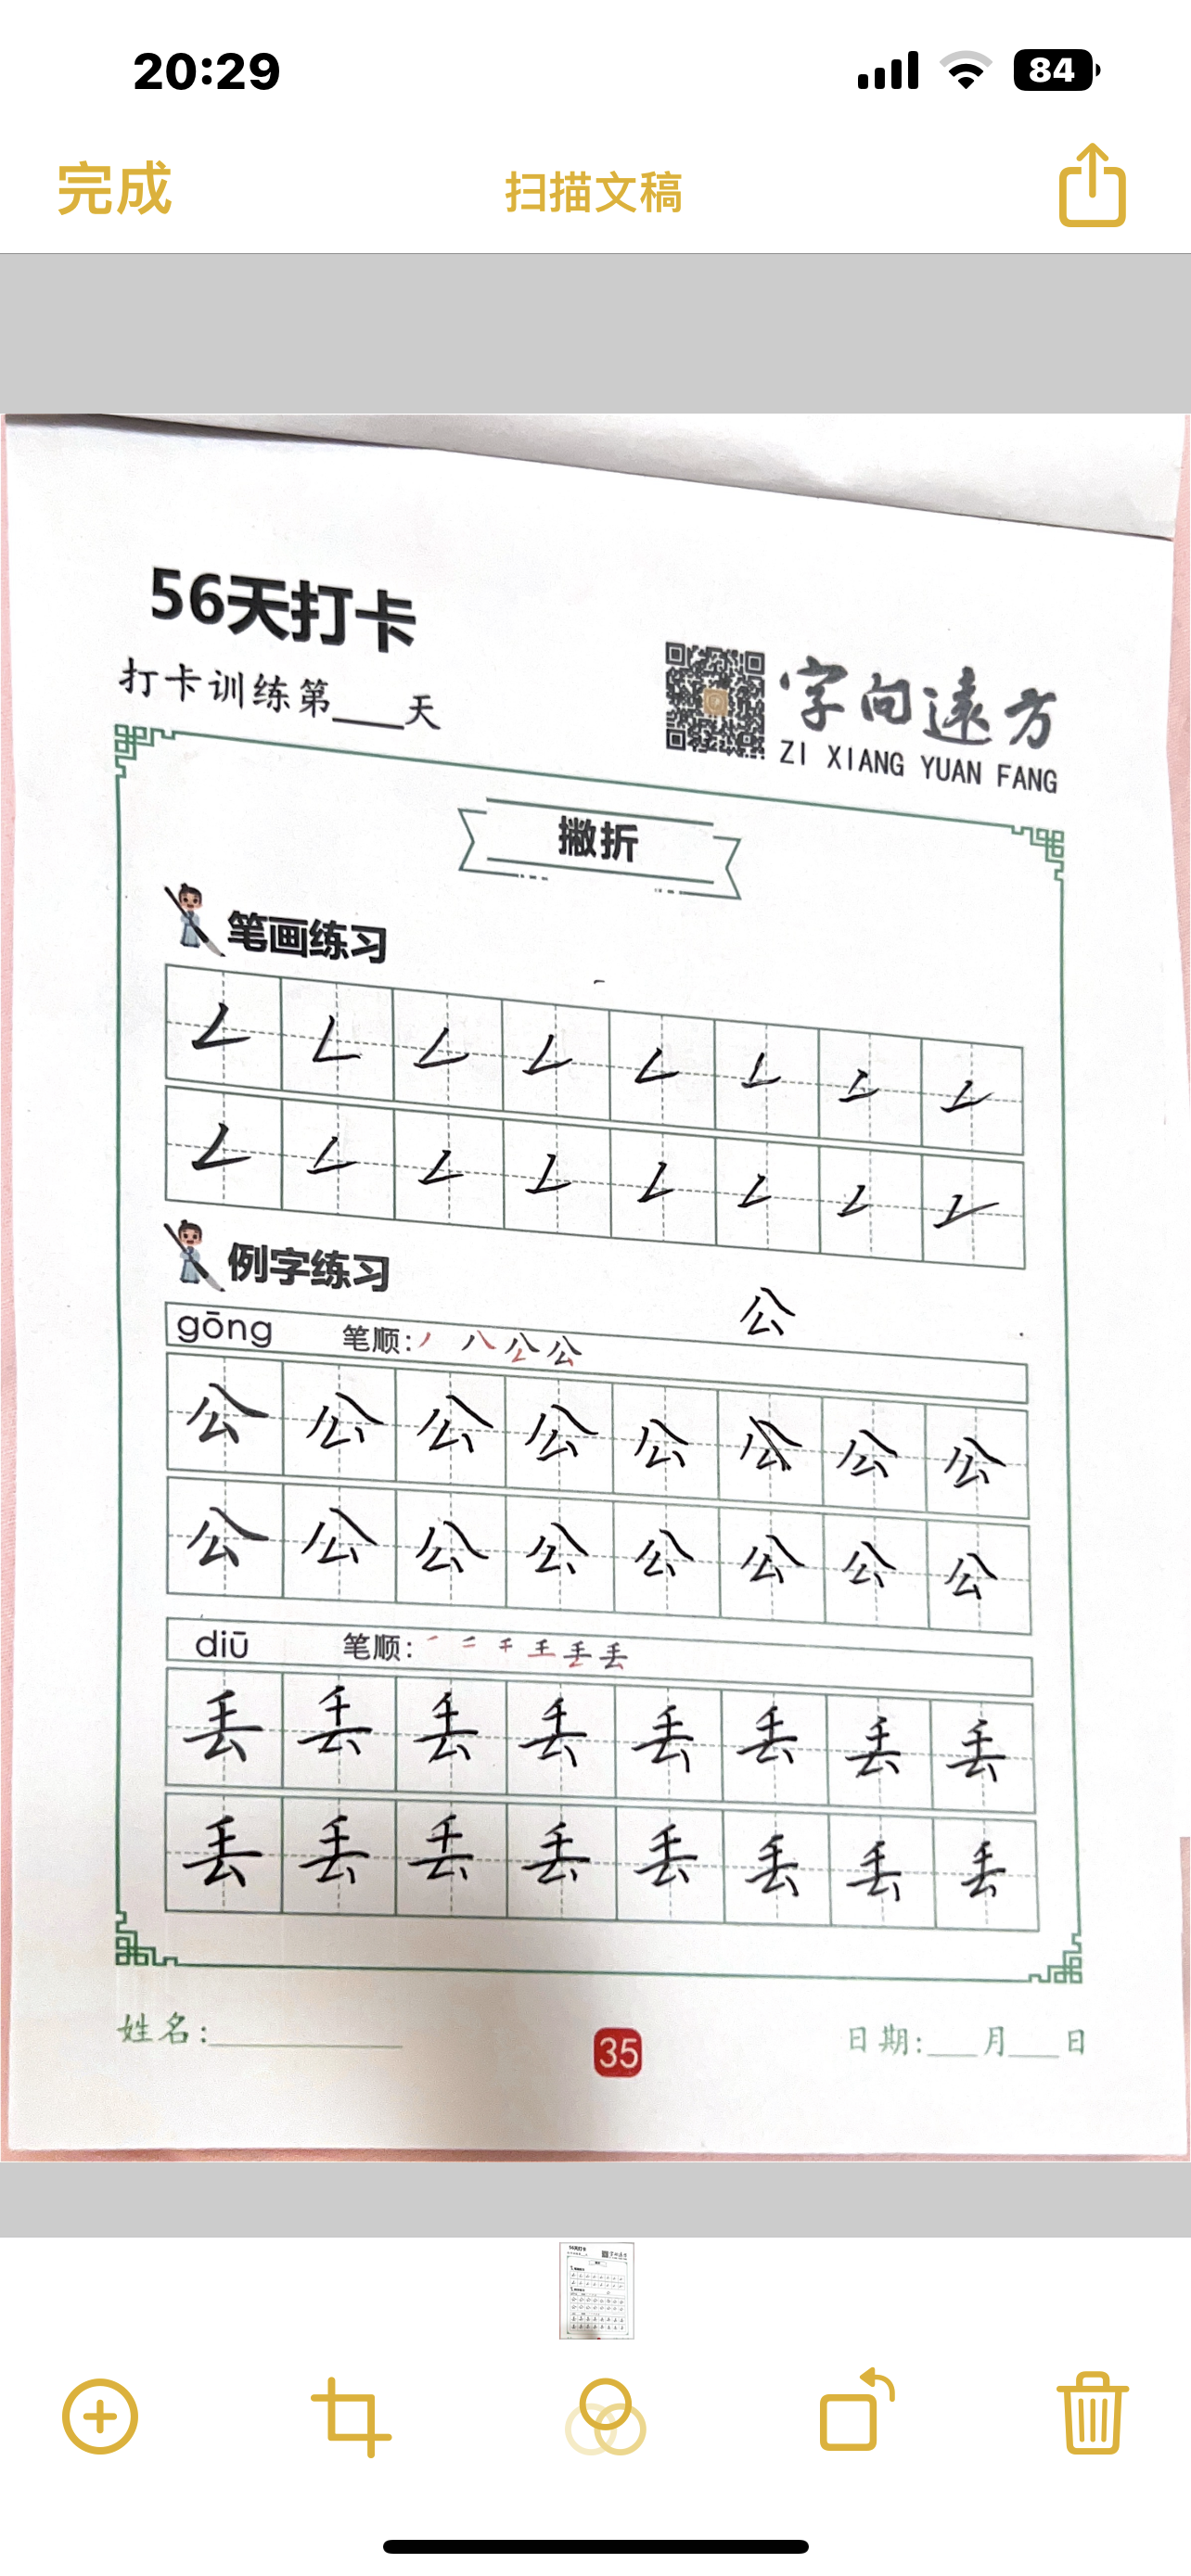 20:29
84
完成
扫描文稿
56天打卡
打卡训练第___天
字向遠方
ZI XIANG YUAN FANG
撇折
笔画练习
𠃋 𠃋 𠃋 𠃋 𠃋 𠃋 𠃋 𠃋
𠃋 𠃋 𠃋 𠃋 𠃋 𠃋 𠃋 𠃋
例字练习
公
gōng 笔顺: 丿 八 公 公
公 公 公 公 公 公 公 公
公 公 公 公 公 公 公 公
diū 笔顺: 一 二 千 王 丢 丢
丢 丢 丢 丢 丢 丢 丢 丢
丢 丢 丢 丢 丢 丢 丢 丢
姓名:___________
35
日期:___月___日